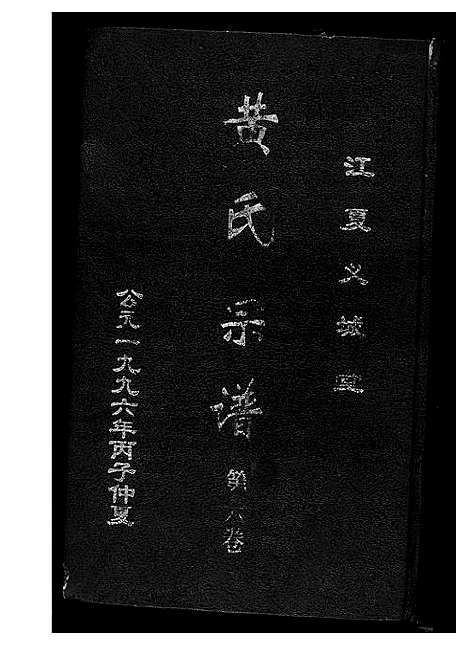 江夏义城堂
黄氏宗谱
第六卷
公元一九九六年丙子仲夏